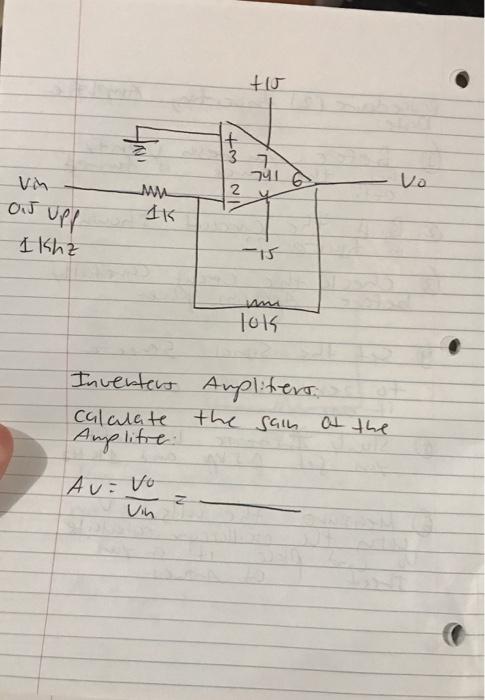 +15
+
3
7
741
6
Vo
Vin
2
4
-
0.5 Vpp
1K
1 Khz
-15
10K
Inverters Amplifiers:
Calculate the gain of the
Amplifie:
Av = Vo
Vin
=